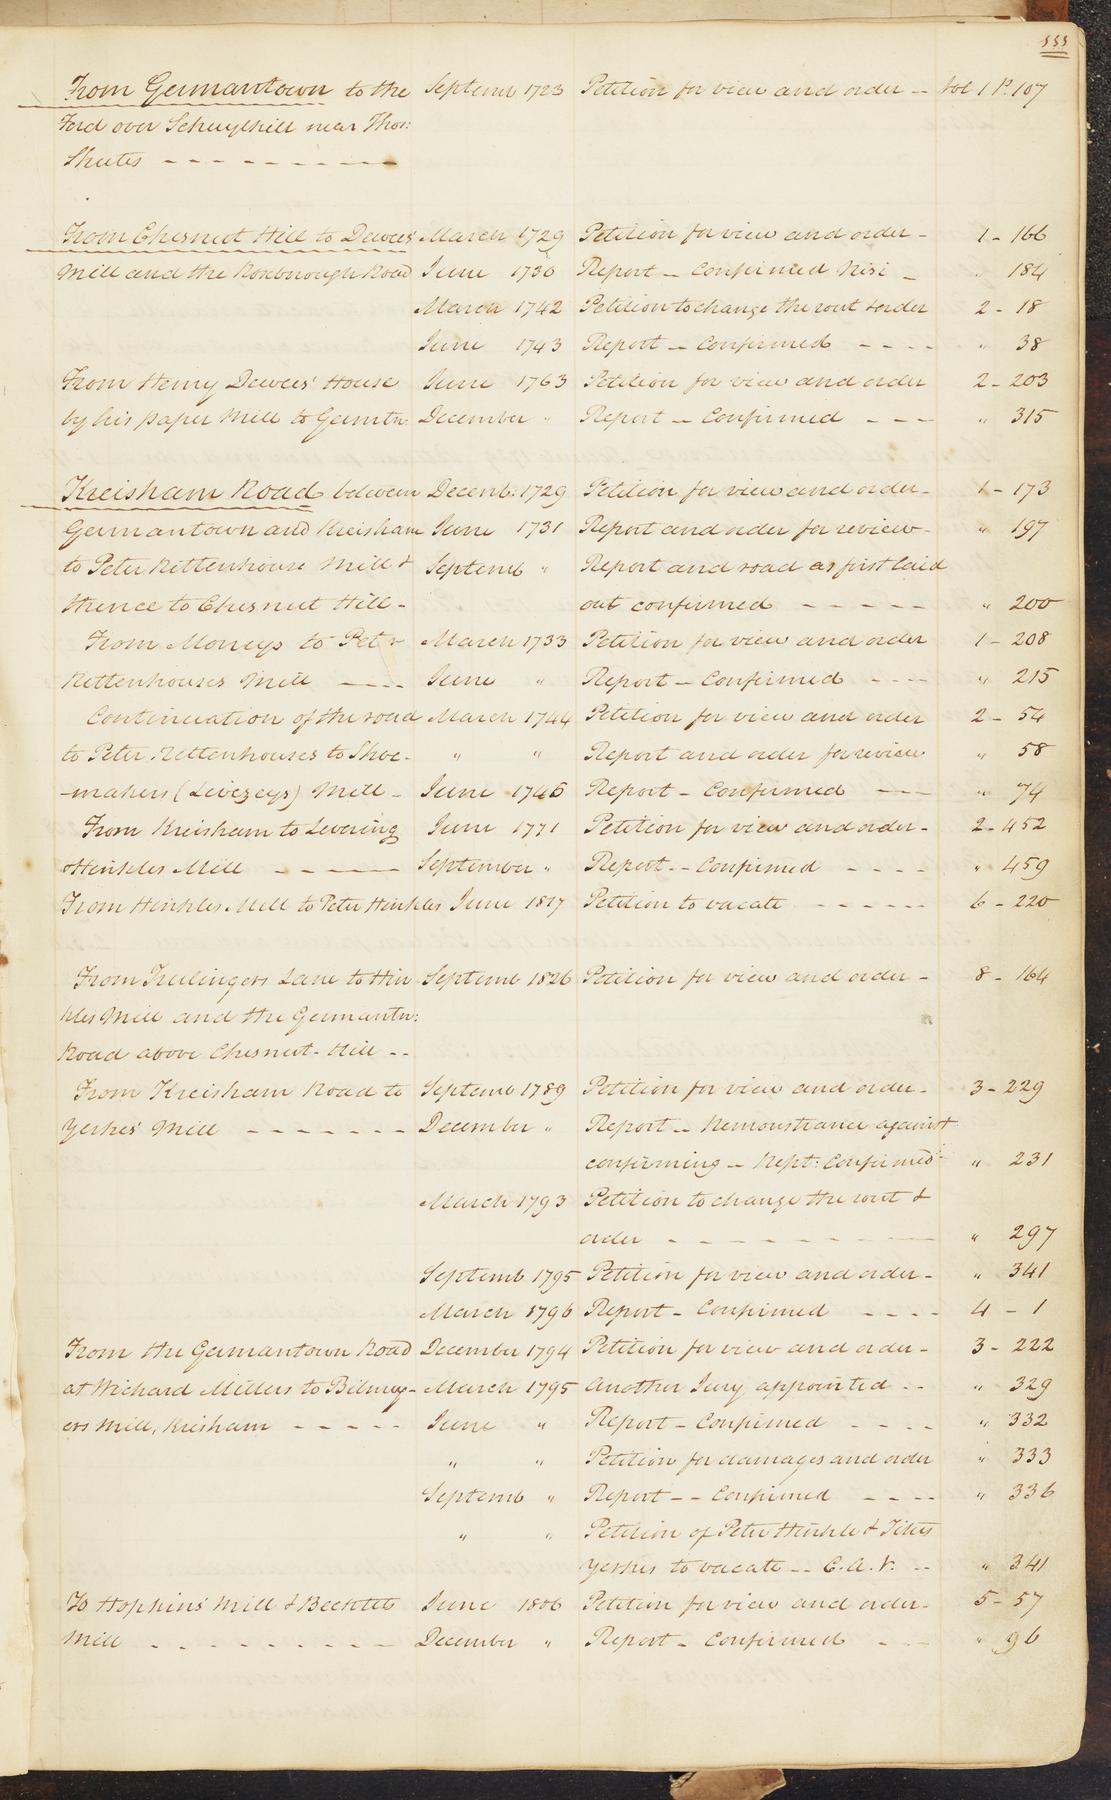 555
From Germantown to the Septemb 1723 Petition for view and order -- Vol 1 P. 107
Ford over Schuylkill near Thos:
Shutes - - - - - - - - - -
From Chesnut Hill to Dewees March 1729 Petition for view and order - 1 - 166
Mill and the Roxborough Road June 1730 Report -- Confirmed Nisi - " 184
March 1742 Petition to change the rout & order 2 - 18
June 1743 Report -- Confirmed - - - - " 38
From Henry Dewees' House June 1763 Petition for view and order 2 - 203
by his paper Mill to Germtn: December " Report -- Confirmed - - - " 315
Kreisham Road between Decemb: 1729 Petition for view and order - 1 - 173
Germantown and Kreisham June 1731 Report and order for review - " 197
to Peter Rettenhouse Mill & Septemb " Report and road as first laid
thence to Chesnut Hill - out confirmed - - - - - " 200
From Moneys to Peter March 1733 Petition for view and order 1 - 208
Rettenhouses Mill - - - - June " Report -- Confirmed - - - - " 215
Continuation of the road March 1744 Petition for view and order 2 - 54
to Peter Rettenhouses to Shoe- " " Report and order for review " 58
-makers (Livezeys) Mill - June 1745 Report - Confirmed - - - " 74
From Kreisham to Levering June 1771 Petition for view and order - 2 - 452
& Hinkles Mill - - - - - September " Report -- Confirmed - - - - " 459
From Hinkles Mill to Peter Hinkles June 1817 Petition to vacate - - - - - - 6 - 220
From Trulingers Lane to Hin Septemb 1826 Petition for view and order - 8 - 164
kles Mill and the Germantn:
Road above Chesnut-Hill --
From Kreisham Road to Septemb 1789 Petition for view and order - 3 - 229
Yerkes' Mill - - - - - - - December " Report -- Remonstrance against
confirming -- Rept: Confirmed " 231
March 1793 Petition to change the rout &
order - - - - - - - - - " 297
Septemb 1795 Petition for view and order - " 341
March 1796 Report - Confirmed - - - - 4 - 1
From the Germantown Road December 1794 Petition for view and order - 3 - 222
at Wichard Millers to Bilmey- March 1795 Another Jury appointed -- " 329
ers Mill, Krisham - - - - - June " Report - Confirmed - - - - " 332
" " Petition for damages and order " 333
Septemb " Report -- Confirmed - - - - " 336
" " Petition of Peter Hinkle & Titus
Yerkes to vacate -- C.A.V. -- " 341
To Hopkins' Mill & Bechtels June 1806 Petition for view and order - 5 - 57
Mill - - - - - - - - - December " Report - Confirmed - - - " 96